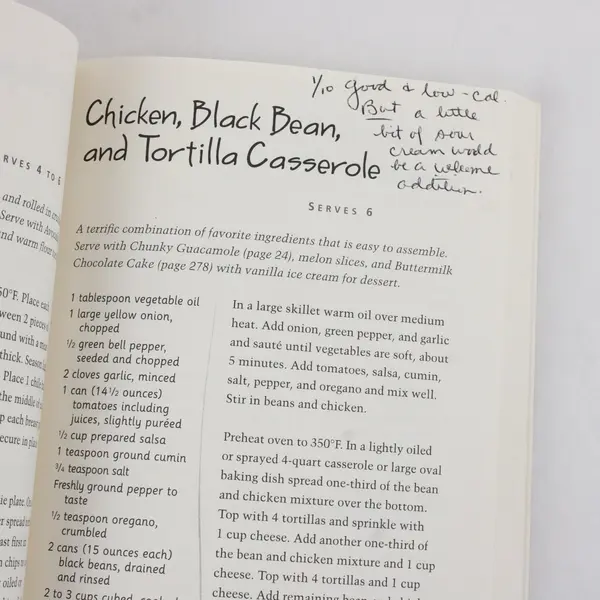 ERVES 4 TO 6
and rolled in
Serve with
and warm flour
50°F. Place each
ween 2 pieces
und with a
thick. Season
Place 1
the middle of
p each breast
ecure in
ie plate.
er spread
ast first
n chips
oiled
1/10 Good & low-cal.
But a little
bit of sour
cream would
be a welcome
addition.
Chicken, Black Bean,
and Tortilla Casserole
SERVES 6
A terrific combination of favorite ingredients that is easy to assemble.
Serve with Chunky Guacamole (page 24), melon slices, and Buttermilk
Chocolate Cake (page 278) with vanilla ice cream for dessert.
1 tablespoon vegetable oil
1 large yellow onion,
chopped
½ green bell pepper,
seeded and chopped
2 cloves garlic, minced
1 can (14½ ounces)
tomatoes including
juices, slightly puréed
½ cup prepared salsa
1 teaspoon ground cumin
¾ teaspoon salt
Freshly ground pepper to
taste
½ teaspoon oregano,
crumbled
2 cans (15 ounces each)
black beans, drained
and rinsed
2 to 3 cups cubed,
In a large skillet warm oil over medium
heat. Add onion, green pepper, and garlic
and sauté until vegetables are soft, about
5 minutes. Add tomatoes, salsa, cumin,
salt, pepper, and oregano and mix well.
Stir in beans and chicken.
Preheat oven to 350°F. In a lightly oiled
or sprayed 4-quart casserole or large oval
baking dish spread one-third of the bean
and chicken mixture over the bottom.
Top with 4 tortillas and sprinkle with
1 cup cheese. Add another one-third of
the bean and chicken mixture and 1 cup
cheese. Top with 4 tortillas and 1 cup
cheese. Add remaining bean and